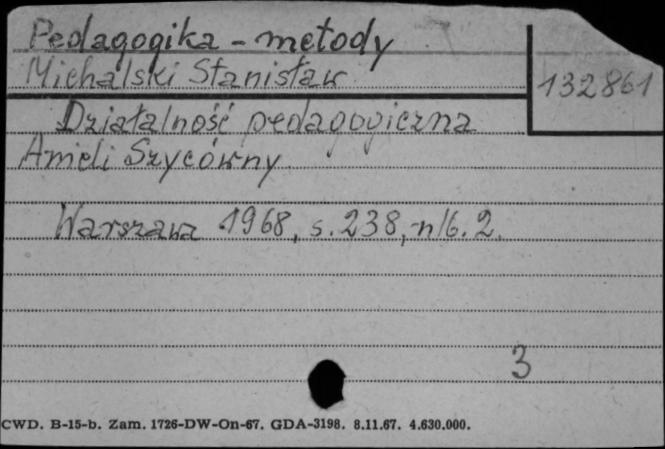 Pedagogika - metody
Michalski Stanisław
132861
Działalność pedagogiczna
Anieli Szycówny
Warszawa 1968, s. 238, nlb. 2.
3
CWD. B-15-b. Zam. 1726-DW-On-67. GDA-3198. 8.11.67. 4.630.000.